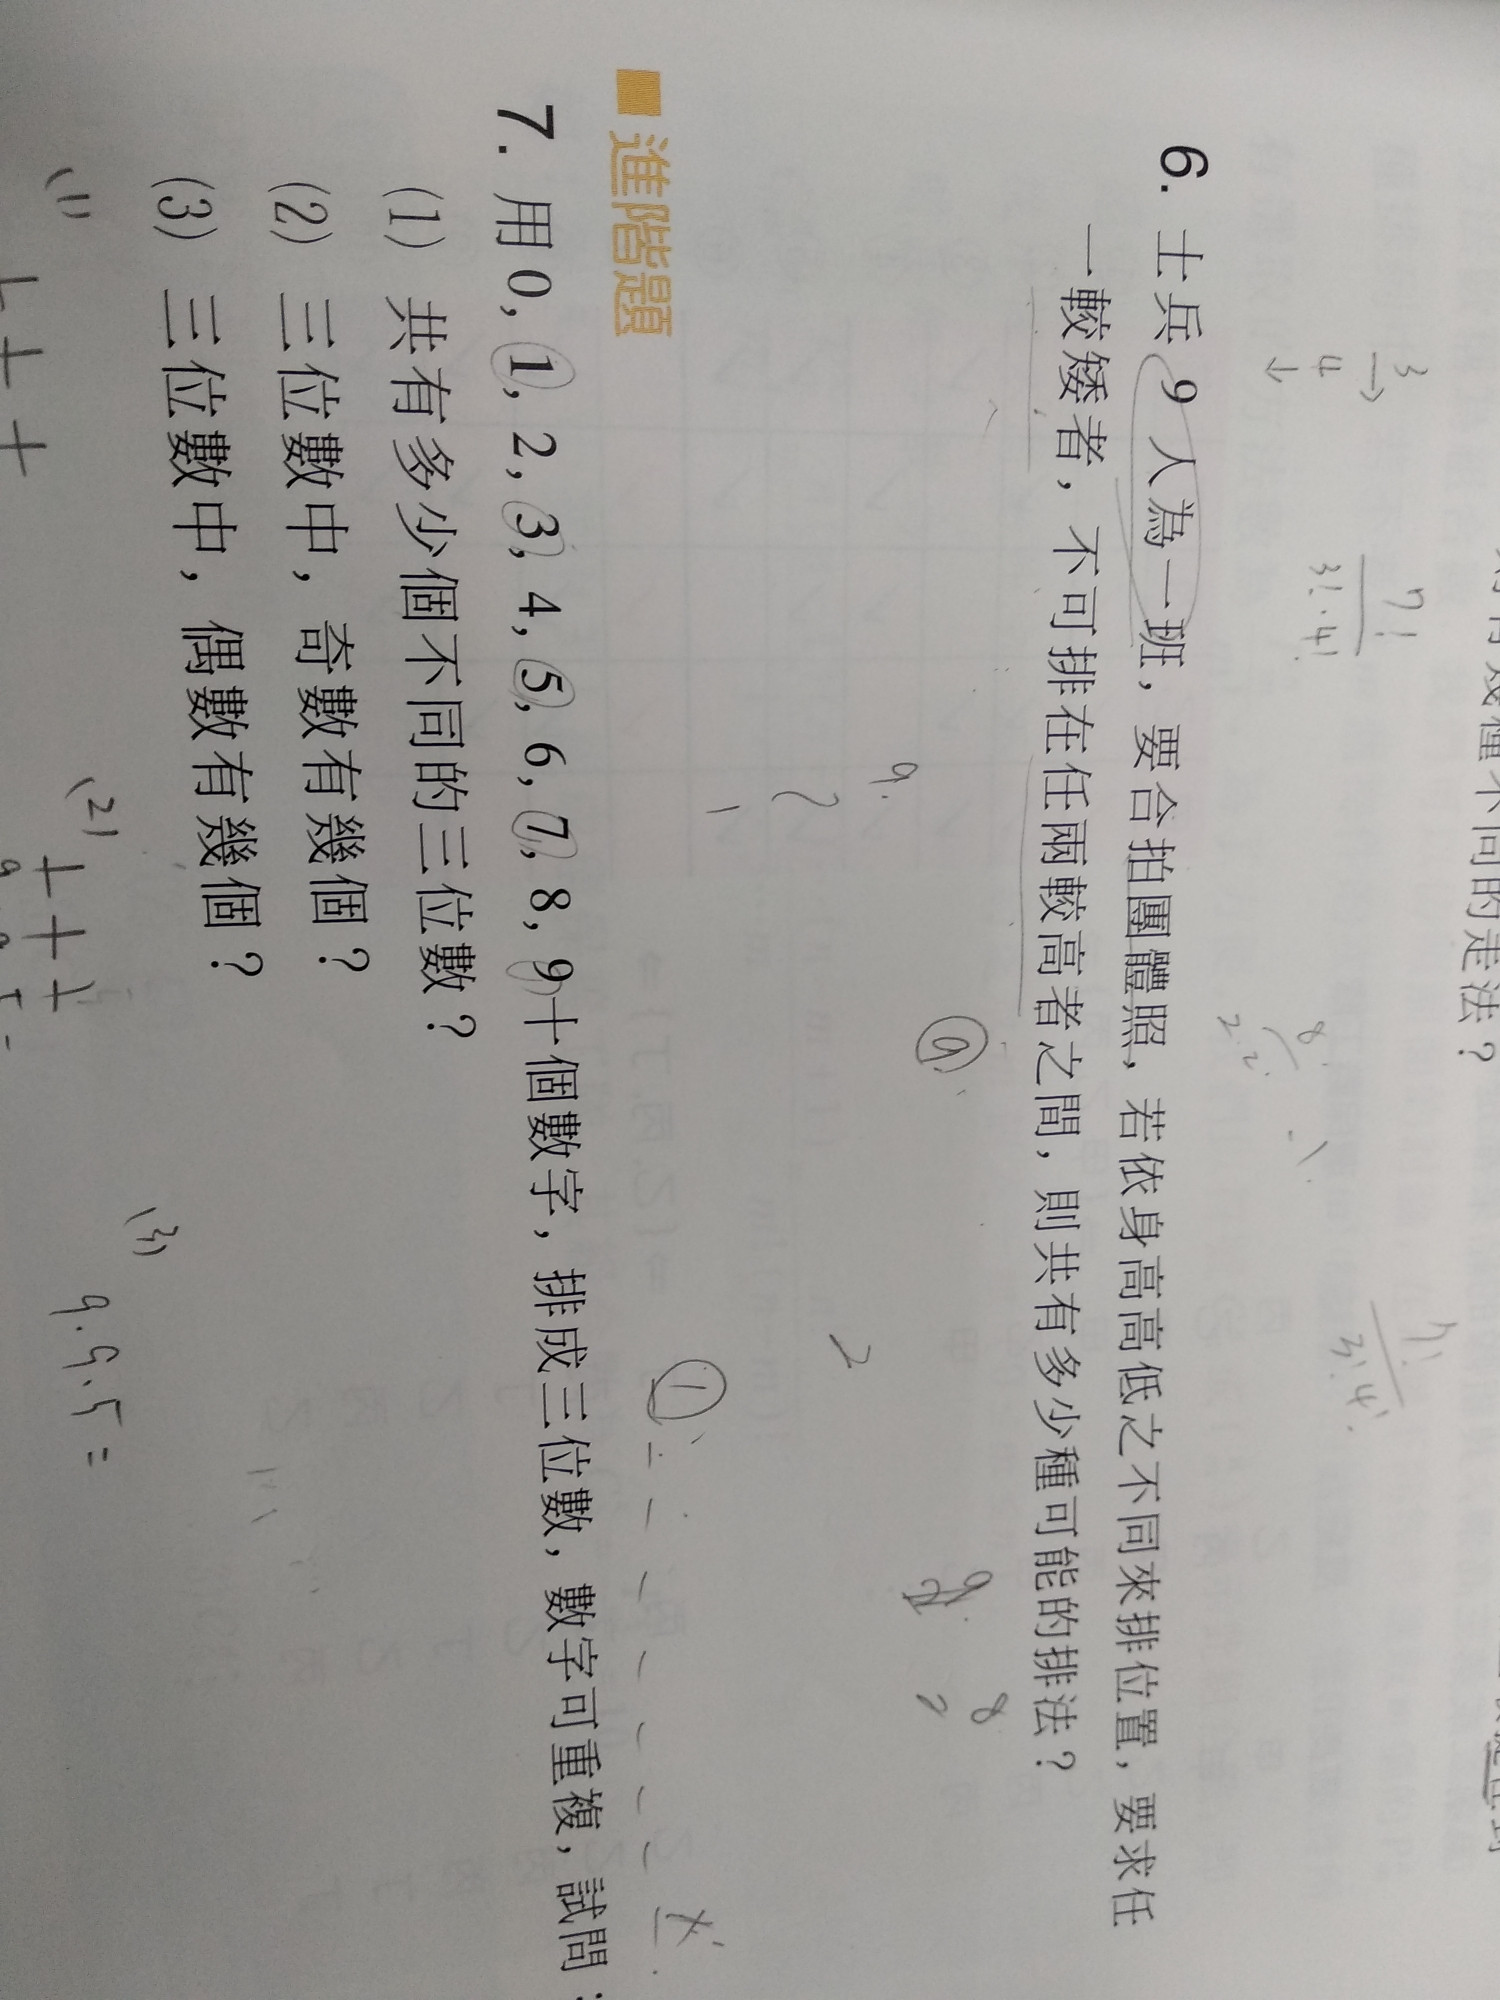 有幾種不同的走法？
3
→
4
↓
7!
3!·4!
8!
2!
7!
3!4!
6. 士兵 9 人為一班，要合拍團體照，若依身高高低之不同來排位置，要求任
一較矮者，不可排在任兩較高者之間，則共有多少種可能的排法？
9
2
8
進階題
1
7. 用0, 1, 2, 3, 4, 5, 6, 7, 8, 9十個數字，排成三位數，數字可重複，試問：
(1) 共有多少個不同的三位數？
(2) 三位數中，奇數有幾個？
(3) 三位數中，偶數有幾個？
(1)
(2)
(3)
9.9.5=